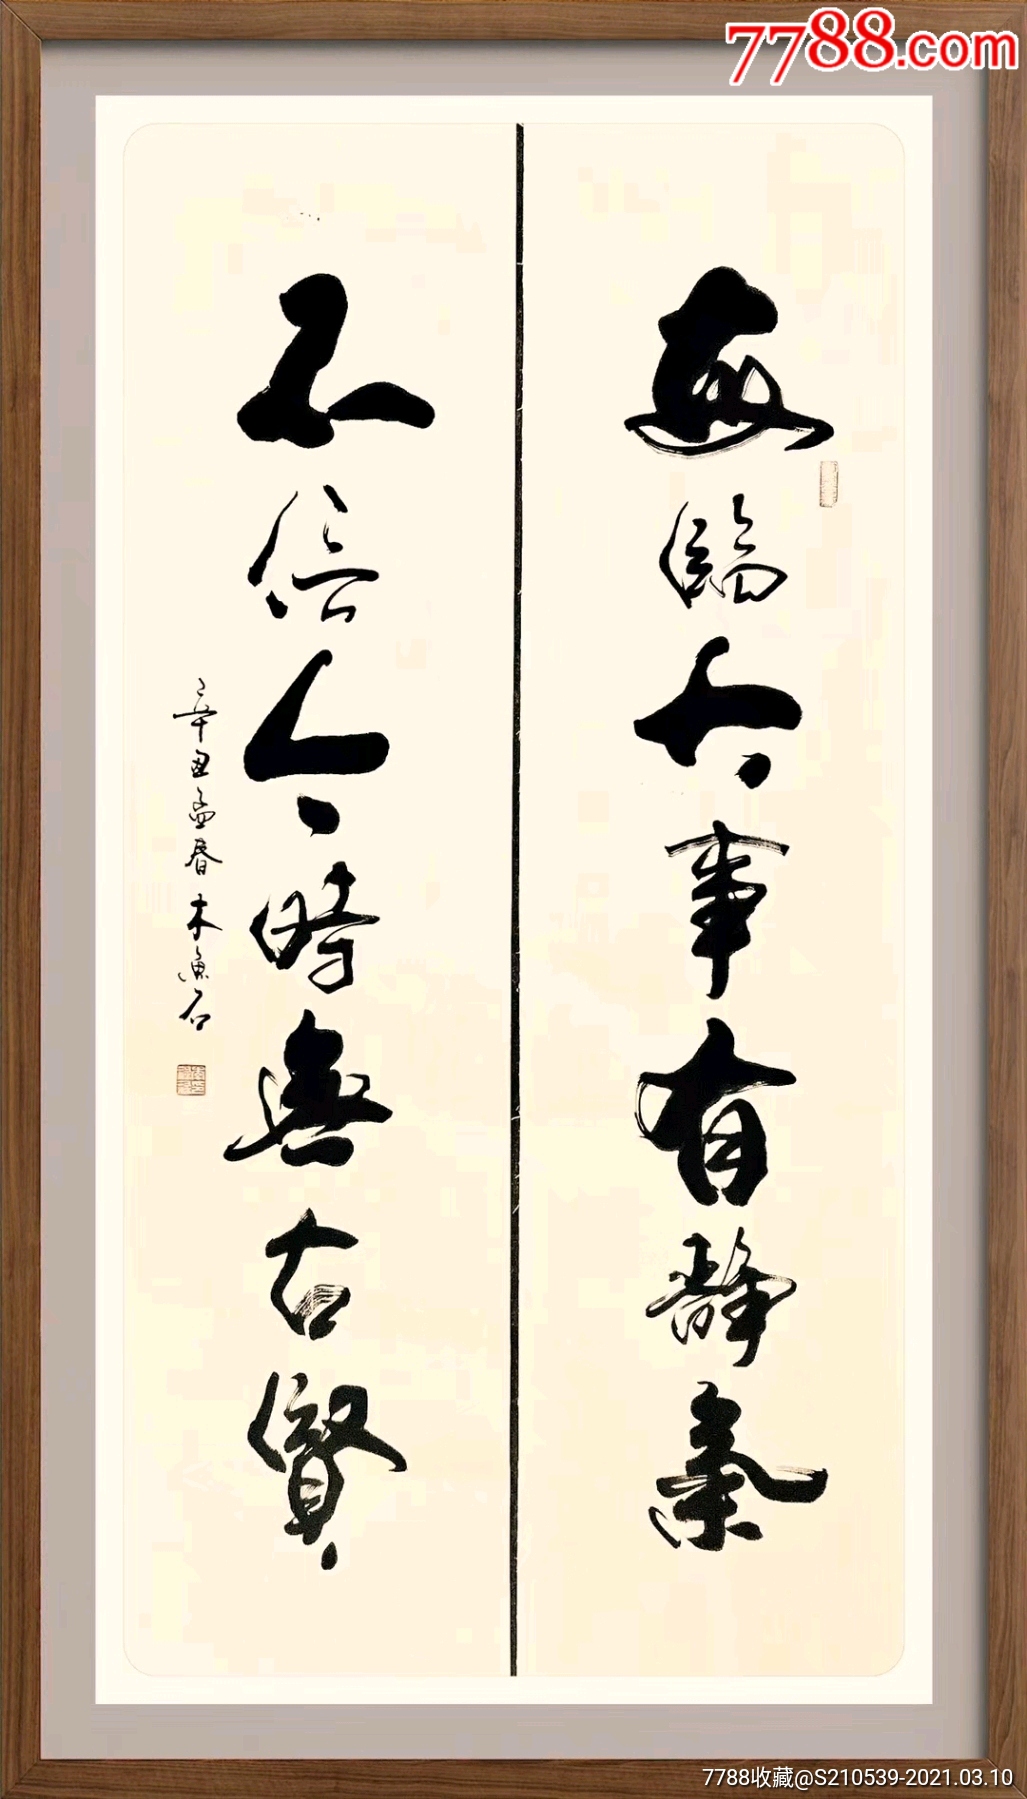 7788.com
每臨大事有靜氣
不信今時無古賢
辛丑孟春木魚石
7788收藏@S210539-2021.03.10